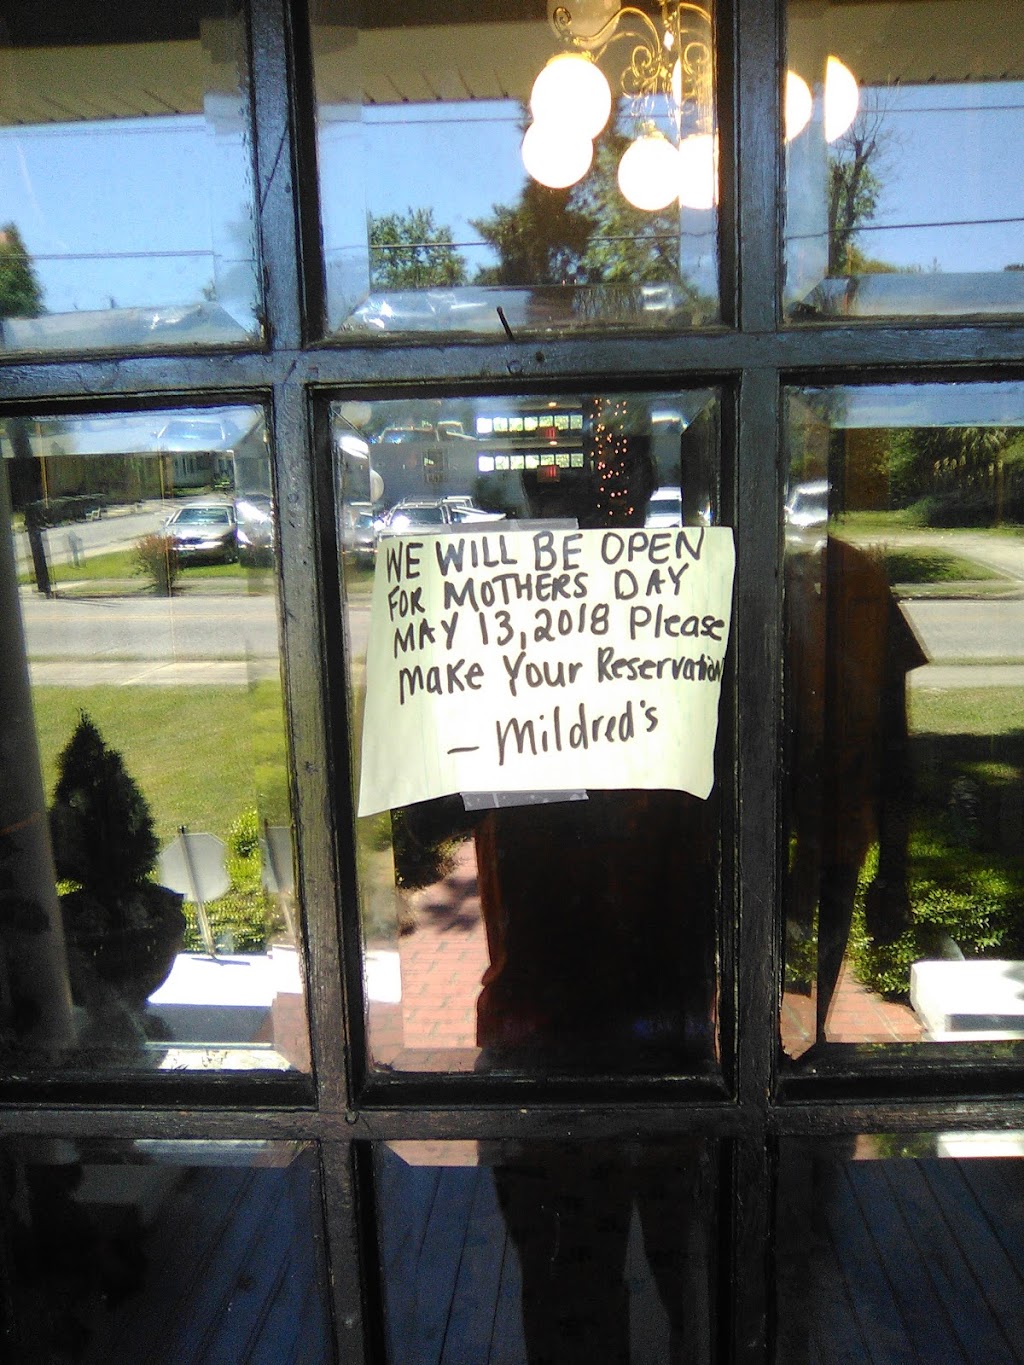 WE WILL BE OPEN
FOR MOTHERS DAY
MAY 13, 2018 Please
make Your Reservation
— Mildred's